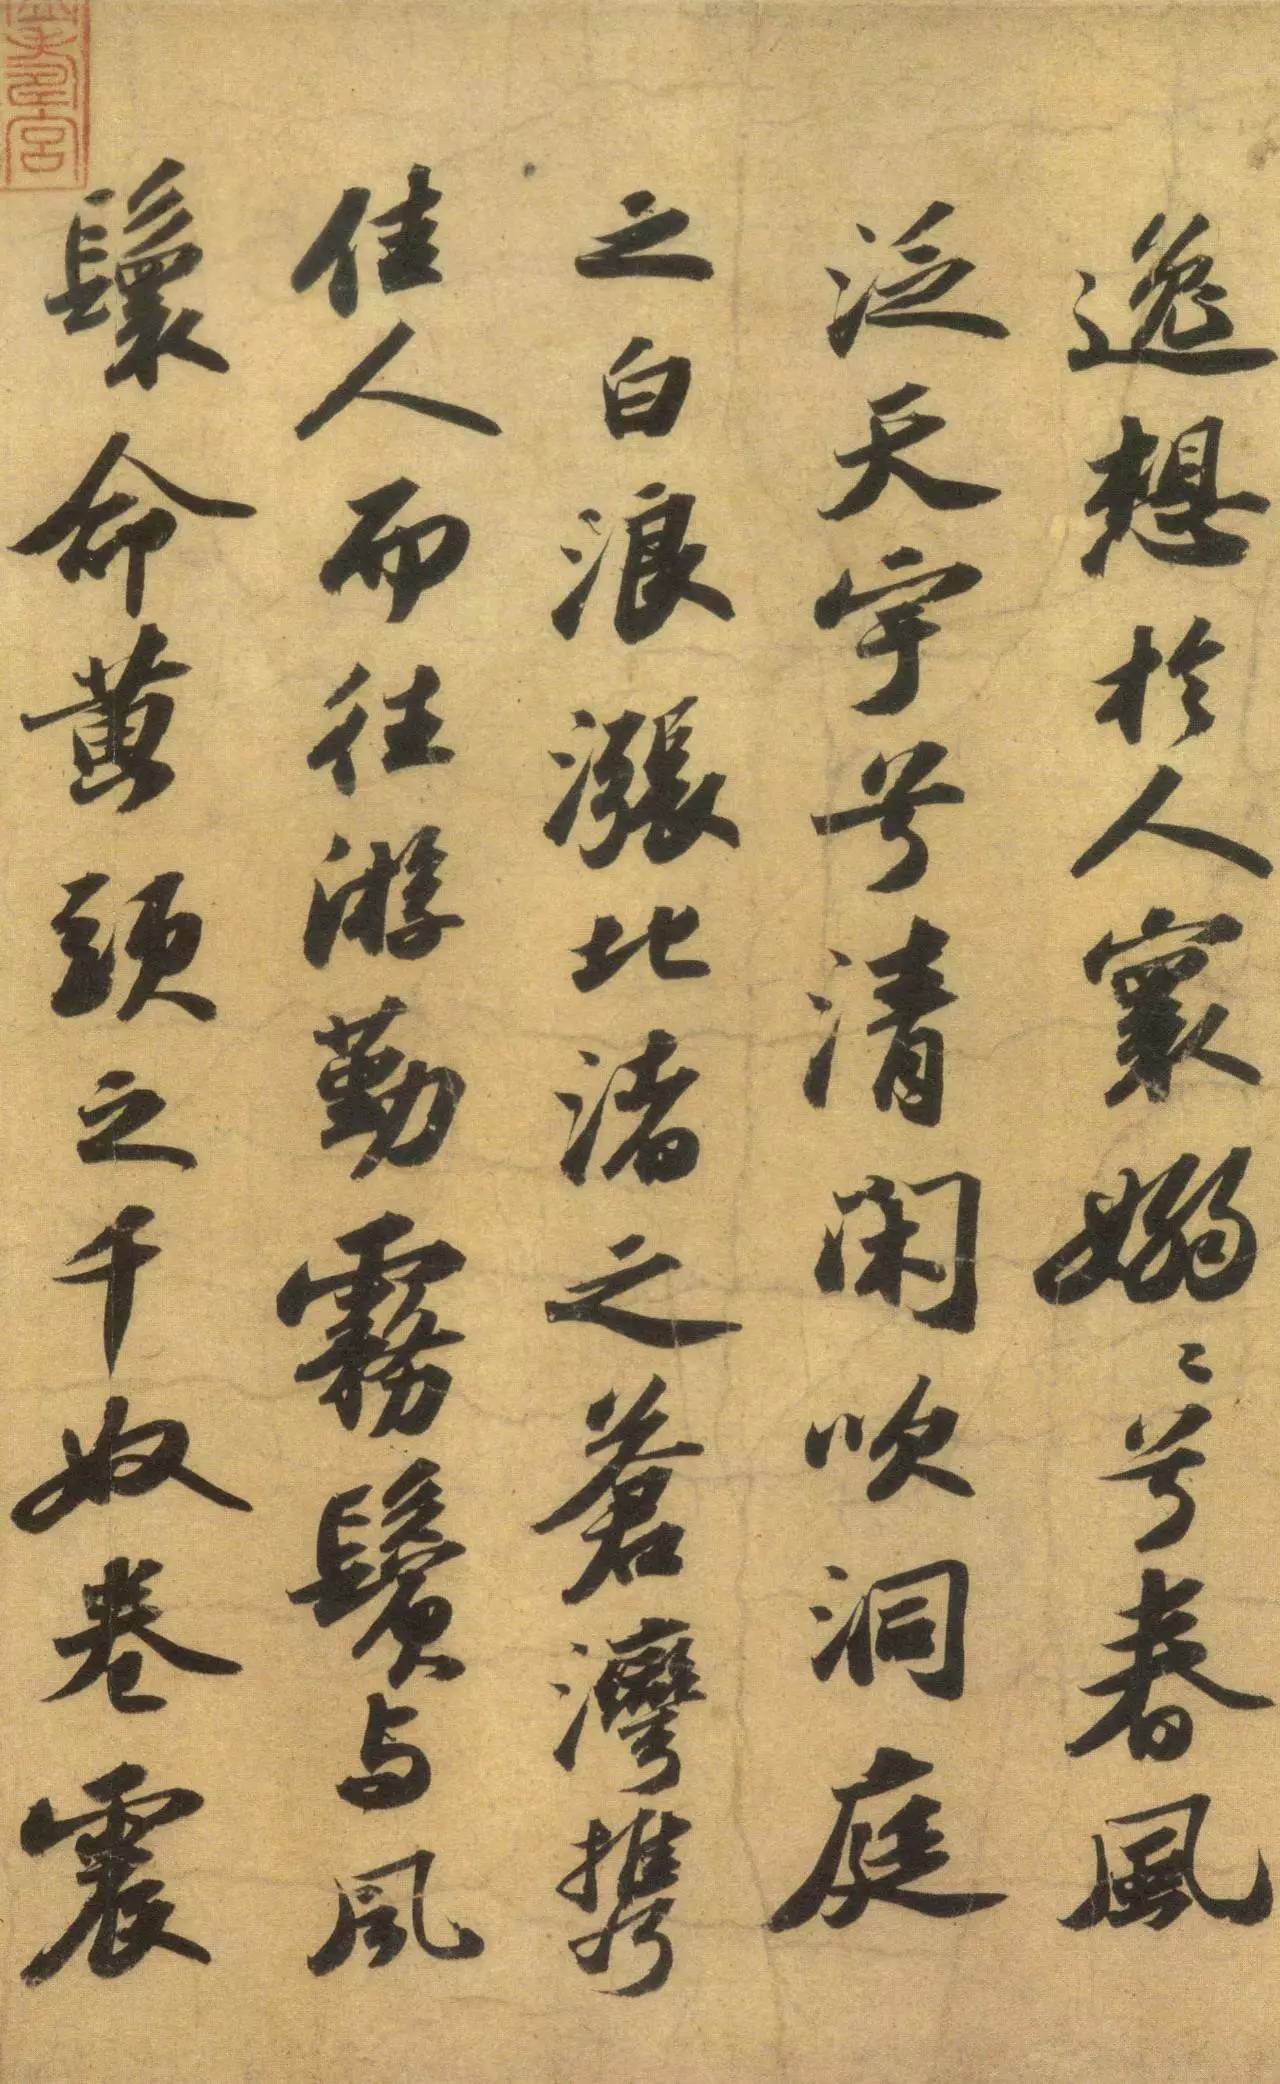 逸想於人寰嫋〻兮春風
泛天宇兮清閑吹洞庭
之白浪漲北渚之蒼灣攜
佳人而往游勤霧鬢与風
鬟命黄頭之千奴卷震